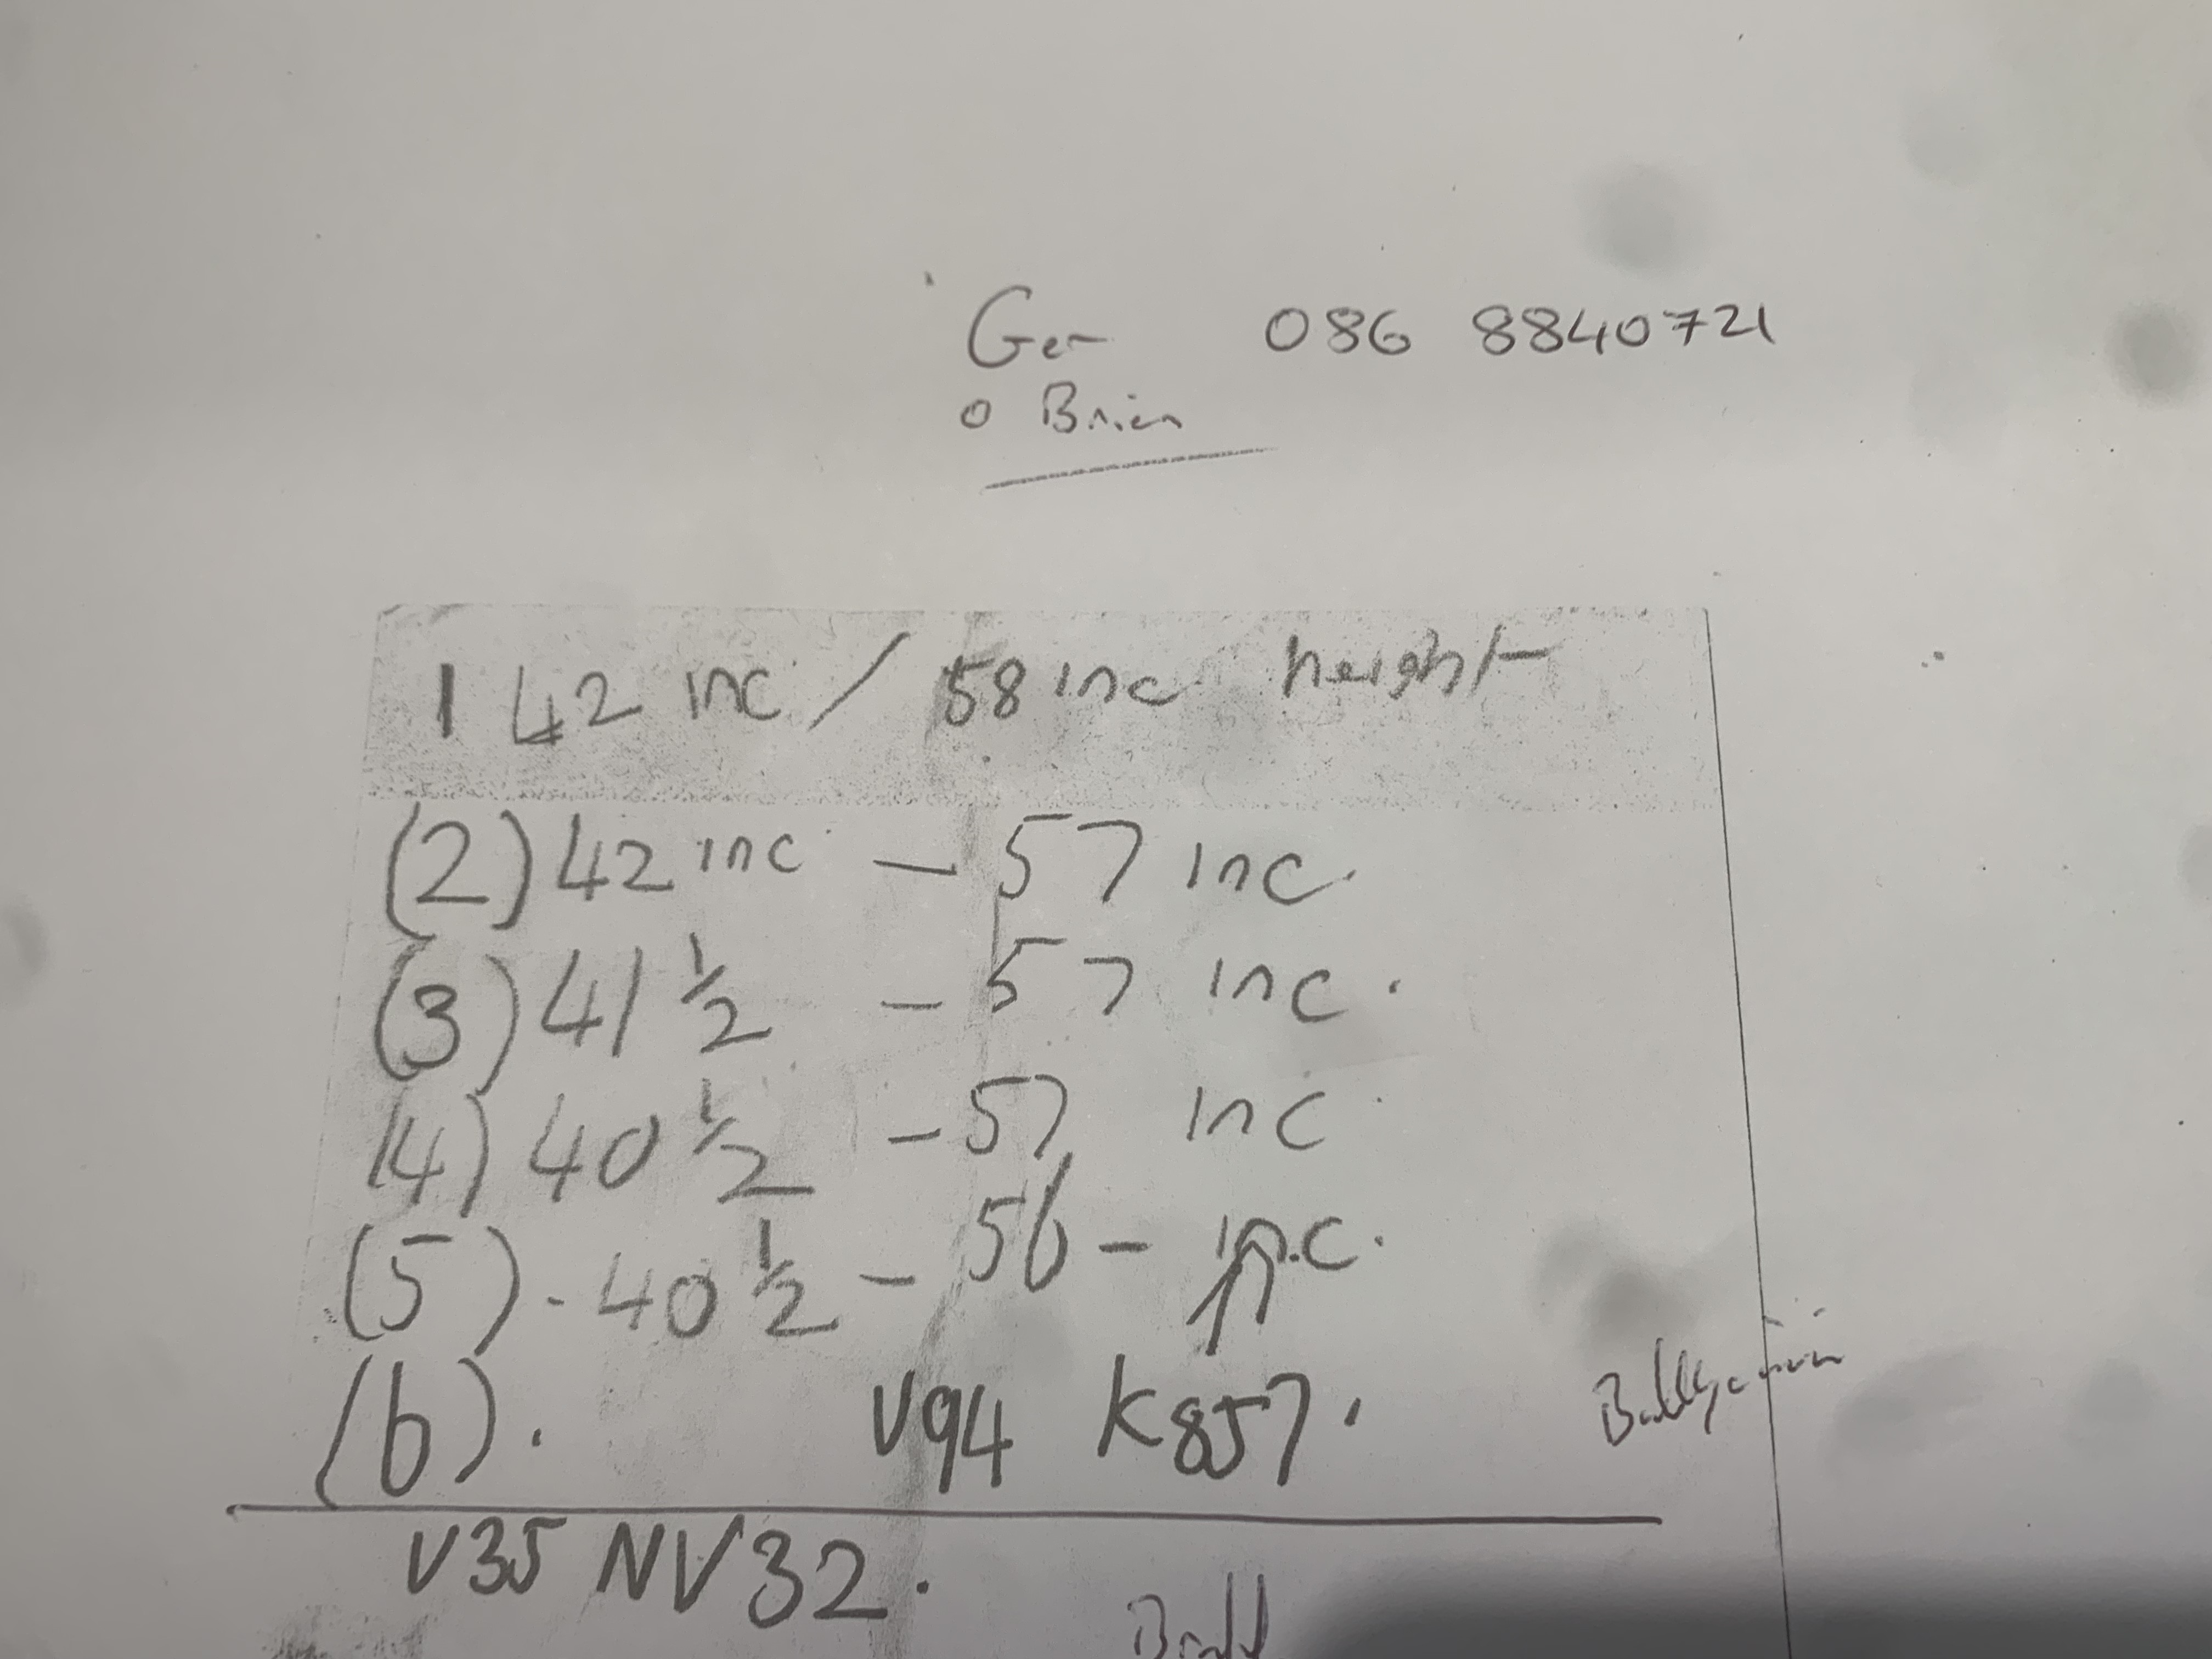 Ger 086 8840721
O Brien
1 42 inc / 58 inc height
(2) 42 inc - 57 inc.
(3) 41 1/2 - 57 inc.
(4) 40 1/2 - 57 inc
(5). 40 1/2 - 56 - inc.
(6). V94 K857.
V35 NV32.